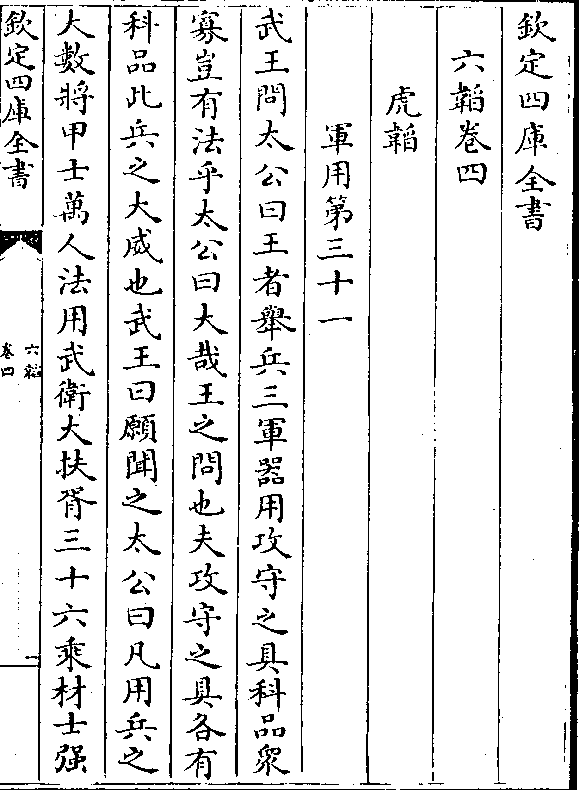 欽定四庫全書
六韜卷四
虎韜
軍用第三十一
武王問太公曰王者舉兵三軍器用攻守之具科品衆
寡豈有法乎太公曰大哉王之問也夫攻守之具各有
科品此兵之大威也武王曰願聞之太公曰凡用兵之
大數將甲士萬人法用武衛大扶胥三十六乘材士强
欽定四庫全書
六韜
卷四
一